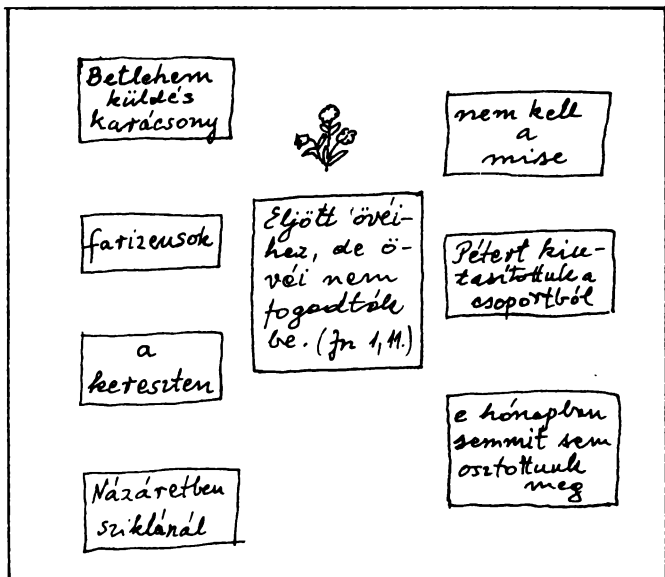 Betlehem
küldés
karácsony
farizeusok
a
kereszten
Názáretben
sziklánál
Eljött övéi-
hez, de ö-
véi nem
fogadták
be. (Jn 1,11.)
nem kell
a
mise
Pétert kiu-
tasítottuk a
csoportból
e hónapban
semmit sem
osztottunk
meg